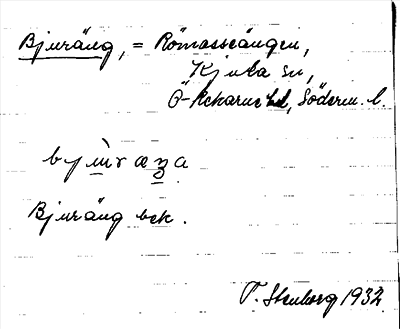 Bjuräng, = Römossängen,
Kjula sn,
Ö-Rekarne hd, Söderm. l.
Bjuräng bek.
P. Stenberg 1932